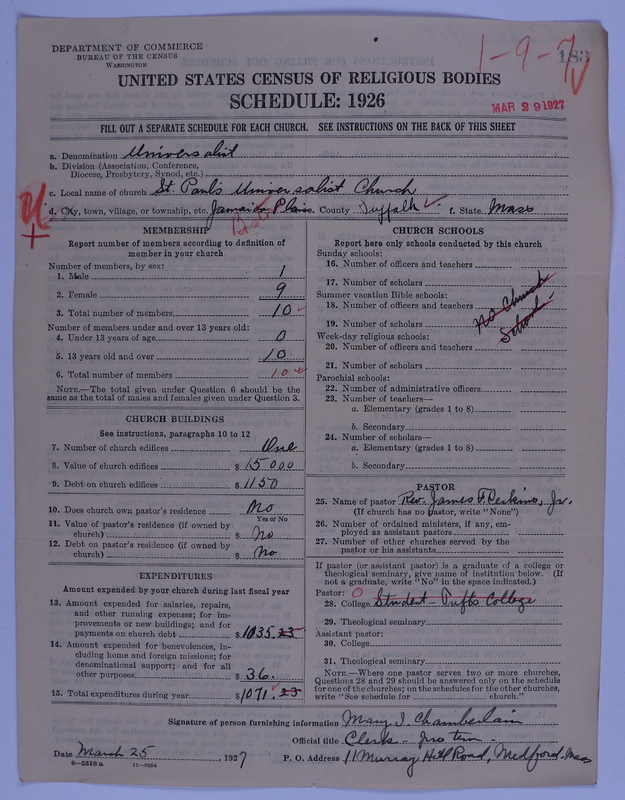 DEPARTMENT OF COMMERCE
BUREAU OF THE CENSUS
WASHINGTON
1-9-7
183
UNITED STATES CENSUS OF RELIGIOUS BODIES
SCHEDULE: 1926
MAR 29 1927
FILL OUT A SEPARATE SCHEDULE FOR EACH CHURCH. SEE INSTRUCTIONS ON THE BACK OF THIS SHEET
a. Denomination Universalist
b. Division (Association, Conference,
Diocese, Presbytery, Synod, etc.)
c. Local name of church St. Paul's Universalist Church
d. City, town, village, or township, etc. Jamaica Plain. County Suffolk f. State Mass
MEMBERSHIP
Report number of members according to definition of
member in your church
Number of members, by sex:
1. Male 1
2. Female 9
3. Total number of members 10
Number of members under and over 13 years old:
4. Under 13 years of age 0
5. 13 years old and over 10
6. Total number of members 10
NOTE.—The total given under Question 6 should be the
same as the total of males and females given under Question 3.
CHURCH BUILDINGS
See instructions, paragraphs 10 to 12
7. Number of church edifices One
8. Value of church edifices $ 15000
9. Debt on church edifices $ 1150
10. Does church own pastor's residence No
Yes or No
11. Value of pastor's residence (if owned by
church) $ No
12. Debt on pastor's residence (if owned by
church) $ No
EXPENDITURES
Amount expended by your church during last fiscal year
13. Amount expended for salaries, repairs,
and other running expenses; for im-
provements or new buildings; and for
payments on church debt $ 1035.25
14. Amount expended for benevolences, in-
cluding home and foreign missions; for
denominational support; and for all
other purposes $ 36.
15. Total expenditures during year $ 1071.25
CHURCH SCHOOLS
Report here only schools conducted by this church
Sunday schools:
16. Number of officers and teachers
17. Number of scholars
Summer vacation Bible schools:
18. Number of officers and teachers
19. Number of scholars
No Church
School
Week-day religious schools:
20. Number of officers and teachers
21. Number of scholars
Parochial schools:
22. Number of administrative officers
23. Number of teachers—
a. Elementary (grades 1 to 8)
b. Secondary
24. Number of scholars—
a. Elementary (grades 1 to 8)
b. Secondary
PASTOR
25. Name of pastor Rev. James F. Perkins, Jr.
(If church has no pastor, write "None")
26. Number of ordained ministers, if any, em-
ployed as assistant pastors
27. Number of other churches served by the
pastor or his assistants
If pastor (or assistant pastor) is a graduate of a college or
theological seminary, give name of institution below. (If
not a graduate, write "No" in the space indicated.)
Pastor: O
28. College Student - Tufts College
29. Theological seminary
Assistant pastor:
30. College
31. Theological seminary
NOTE.—Where one pastor serves two or more churches,
Questions 28 and 29 should be answered only on the schedule
for one of the churches; on the schedules for the other churches,
write "See schedule for church."
Signature of person furnishing information Mary I. Chamberlain
Official title Clerk - pro tem
Date March 25, 1927 P. O. Address 11 Murray Hill Road, Medford, Mass
8-5518a 11-9064